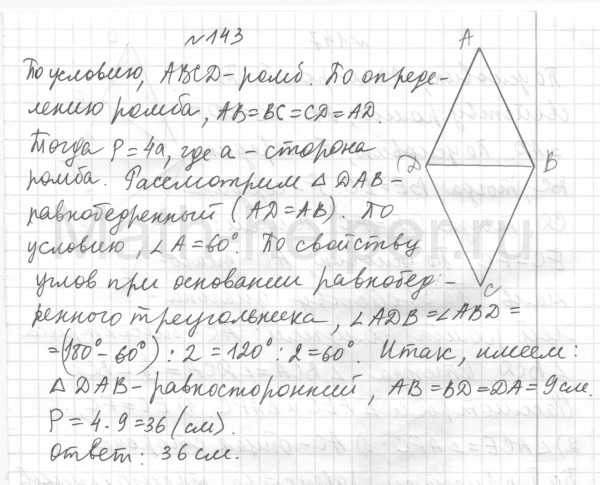 №143
A
По условию, ABCD - ромб. По опреде-
лению ромба, AB=BC=CD=AD.
Тогда P=4a, где a - сторона
D
B
ромба. Рассмотрим △DAB -
равнобедренный (AD=AB). По
условию, ∠A=60°. По свойству
углов при основании равнобед-
C
ренного треугольника, ∠ADB=∠ABD=
=(180°-60°):2=120°:2=60°. Итак, имеем:
△DAB - равносторонний, AB=BD=DA=9см.
P=4·9=36(см).
Ответ: 36 см.